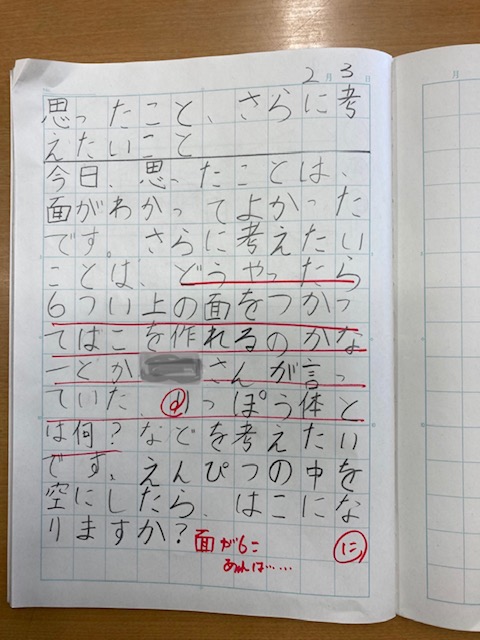 2月3日
思ったこと、さらに考
えたいこと
今日、思ったことは、
面がわかってよかった
です。さらに考えたい
ことは、どうやったら
6つい上の面をつかっ
てはこを作れるのかな
ーとか さんが言っ
ていた、 っぽう体と
は何?などを考えたい
です。えんぴつの中を
空にしたら、はこにな
りますか?
面が6こ
あれば……
に
月